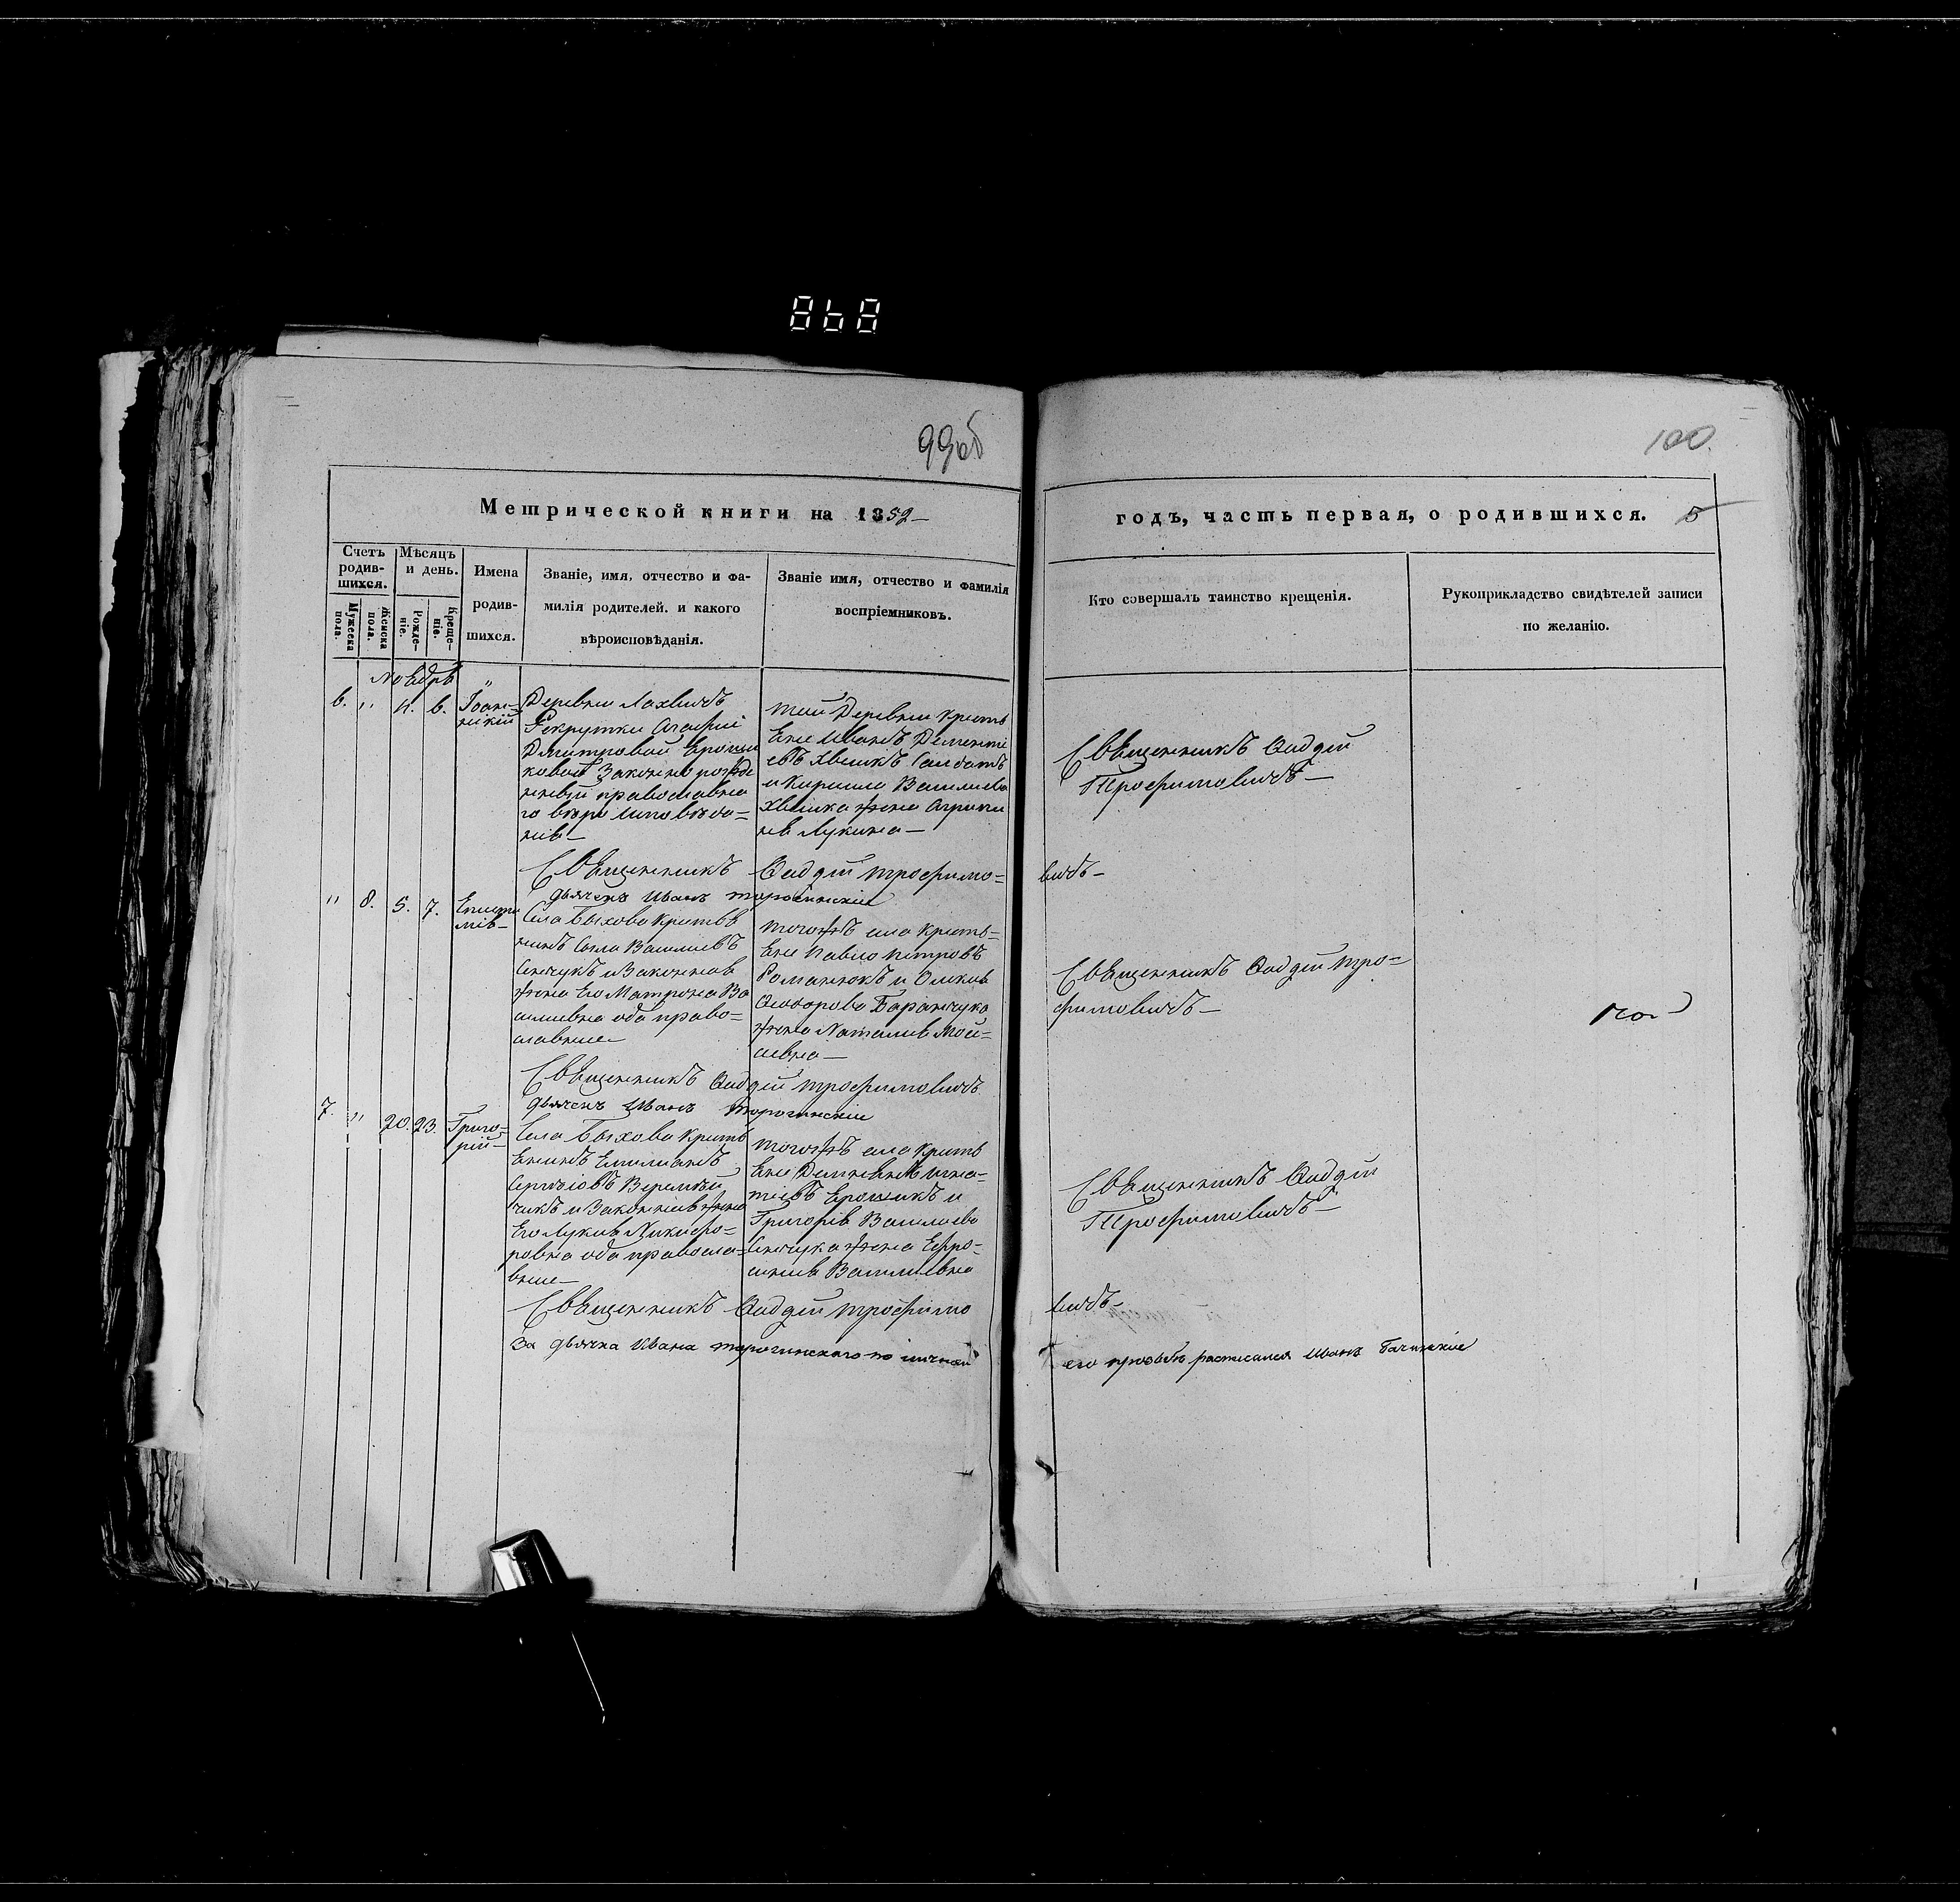 868
99об
100.
Метрической книги на 1852
годъ, часть первая, о родившихся. 5
Счетъ родив-шихся.
Мужеска пола.
Женска пола.
Мѣсяцъ и день.
Рожде-ніе.
Креще-ніе.
Имена
родив-
шихся.
Званіе, имя, отчество и фа-
милія родителей. и какого
вѣроисповѣданія.
Званіе имя, отчество и фамилія
воспріемниковъ.
Кто совершалъ таинство крещенія.
Рукоприкладство свидѣтелей записи
по желанію.
Ноября
6. " 4. 6.
Іоан-
никій
Деревни
Рекрутки
Дмитровой Ерошu
ковой Законно рожде
нный православна
го вѣро исповѣда=
нія
той Деревни Крестья
Ене Иванъ Дементі
евъ Хвещикъ Солдатъ
и Кирила Василиева
жена Агрипи
на Лукина
Священникъ Авдѣй
Трофимовичъ
Священникъ Авдѣй трофимо=
вичъ
дьячекъ Иванъ
" 8. 5. 7.
Села Быхова Крестья
нинъ Сила Василиевъ
Сенчукъ и Законная
жена Его Матрона Ва
силиевна оба право=
славные
тогожъ села Крестья=
Ене Павло Петровъ
Романюкъ и
Феодорова Баранчука
жена Наталия Мой=
сиевна
Священникъ Авдѣй тро=
фимовичъ
Священникъ Авдѣй трофимовичъ
дьячекъ Иванъ Торогинскій
7. " 20. 23.
Григо=
рій
Села Быхова Крестья
Енинъ Емилианъ
чикъ и Законная жена
Его Лукия Никифо=
ровна оба правосла=
вные
тогожъ села Крестья
Ене
тіевъ Ерошикъ и
Григорія Василиева
Сенчука жена Ефро=
синия Василиевна
Священникъ Авдѣй
Трофимовичъ
Священникъ Авдѣй трофимо
вичъ
За дьячка Ивана торогинскаго по личной
его прозьбѣ росписался Иванъ